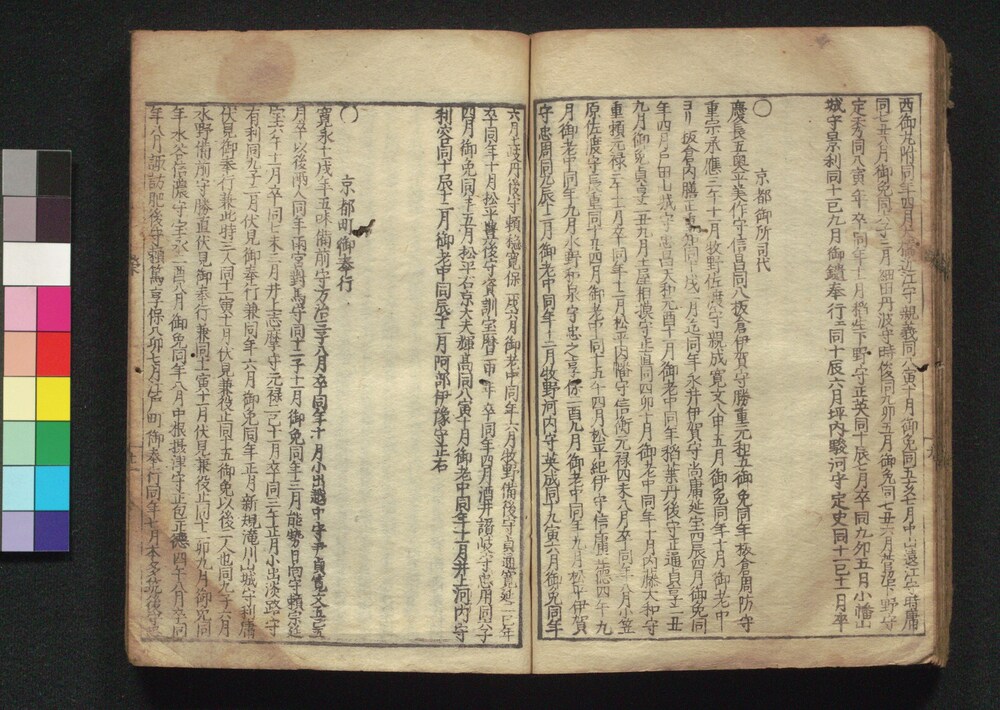 西御丸附同年四月 近江守親義同八寅十月御免同五亥十月中山遠江守時庸
同七丑六月御免同 三月細田丹波守時俊同九卯五月御免同七丑六月菅沼下野守
定秀同八寅年卒同年 月稲生下野守正英同十辰七月卒同九卯五月小幡山
城守景利同十巳九月御鑓奉行ニ同十辰六月坪内駿河守定史同十一巳十二月卒
〇京都御所司代
慶長五奥平美作守信昌同八板倉伊賀守勝重元和五御免同年板倉周防守
重宗承應三午十一月牧野佐渡守親成寛文八申五月御免同年十月御老中
ヨリ板倉内膳正重 同十戌二月 同年永井伊賀守尚庸延宝四辰四月御免同
年四月戸田山城守忠昌天和元酉十一月御老中同年稲葉丹後守正通貞享二丑
九月御免貞享二丑九月土屋相摸守正直同四卯十月御老中同年十月内藤大和守
重頼元禄三午十一月卒同年十二月松平因幡守信衡元禄四未八月卒同年八月小笠
原佐渡守長重同十五四月御老中同十五午四月松平紀伊守信庸正徳四午九
月御老中同年九月水野和泉守忠之享保二酉九月御老中同年九月松平伊賀
守忠周同九辰十二月御老中同年十二月牧野河内守英成同十九寅六月御免同年
六月土岐丹後守頼稔寛保二戌六月御老中同年六月牧野備後守貞通寛延二巳年
卒同年十月松平豊後守資訓宝暦二申年卒同年四月酒井讃岐守忠用同六子
四月御免同年五月松平右京大夫輝高同八寅十月御老中同年十一月井上河内守
利容同十辰十二月御老中同辰十二月阿部伊豫守正右
〇京都町御奉行
寛永十一戌年五味備前守万治三子八月卒同年十一月小出越中守尹貞寛文五巳五
月卒以後両人同年雨宮對馬守同十二子十一月御免同年十二月能勢日向守頼宗延
宝六午十二月卒同七未三月井上志摩守元禄二巳十二月卒同三午正月小出淡路守
有利同九子二月伏見御奉行兼同年六月御免同年正月新規滝川山城守利庸
伏見御奉行兼此時三人同十一寅十一月伏見兼役止同十五御免以後二人也同九子六月
水野備前守勝直伏見御奉行兼同十一寅十一月伏見兼役止同十二卯九月御免同
年水谷信濃守宝永二酉八月御免同年八月中根摂津守正包正徳四午八月卒同
年八月諏訪肥後守頼篤享保八卯七月江戸町御奉行同年七月本多筑後守